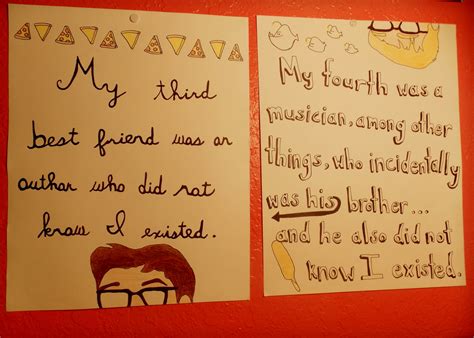 My third
best friend was an
author who did not
know I existed.
My fourth was a
musician, among other
things, who incidentally
was his brother...
and he also did not
know I existed.